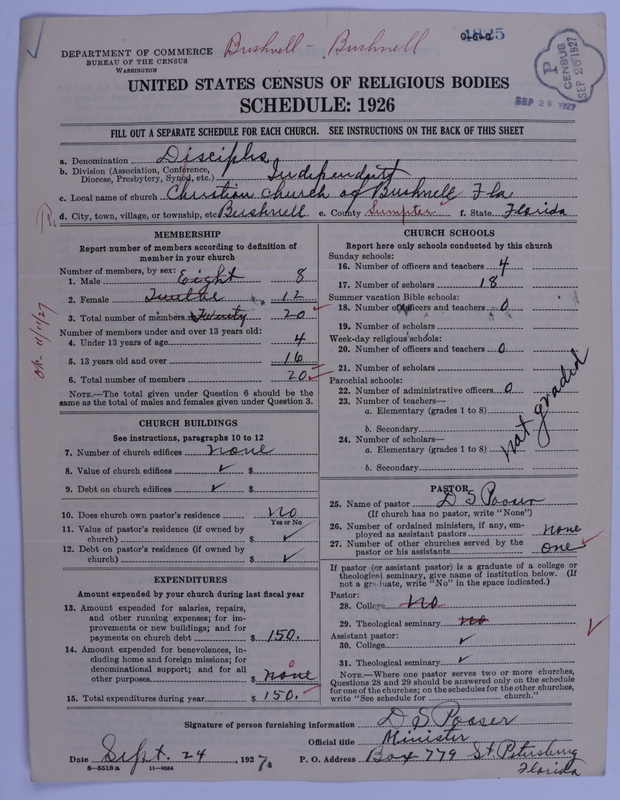 Bushnell - Bushnell
DEPARTMENT OF COMMERCE
BUREAU OF THE CENSUS
WASHINGTON
P CENSUS SEP 26 1927
SEP 26 1927
UNITED STATES CENSUS OF RELIGIOUS BODIES
SCHEDULE: 1926
FILL OUT A SEPARATE SCHEDULE FOR EACH CHURCH. SEE INSTRUCTIONS ON THE BACK OF THIS SHEET
a. Denomination Disciples
b. Division (Association, Conference, Diocese, Presbytery, Synod, etc.) Independent
c. Local name of church Christian church of Bushnell Fla
d. City, town, village, or township, etc. Bushnell e. County Sumpter f. State Florida
MEMBERSHIP
Report number of members according to definition of
member in your church
Number of members, by sex:
1. Male Eight 8
2. Female Twelve 12
3. Total number of members Twenty 20
Number of members under and over 13 years old:
4. Under 13 years of age 4
5. 13 years old and over 16
6. Total number of members 20
NOTE.—The total given under Question 6 should be the
same as the total of males and females given under Question 3.
OK. 11/11/27
CHURCH BUILDINGS
See instructions, paragraphs 10 to 12
7. Number of church edifices none
8. Value of church edifices ✓ $
9. Debt on church edifices ✓ $
10. Does church own pastor's residence No
Yes or No
11. Value of pastor's residence (if owned by
church) $ ✓
12. Debt on pastor's residence (if owned by
church) $ ✓
EXPENDITURES
Amount expended by your church during last fiscal year
13. Amount expended for salaries, repairs,
and other running expenses; for im-
provements or new buildings; and for
payments on church debt $ 150.
14. Amount expended for benevolences, in-
cluding home and foreign missions; for
denominational support; and for all
other purposes $ none 0
15. Total expenditures during year $ 150.
CHURCH SCHOOLS
Report here only schools conducted by this church
Sunday schools:
16. Number of officers and teachers 4
17. Number of scholars 18
Summer vacation Bible schools:
18. Number of officers and teachers 0
19. Number of scholars
Week-day religious schools:
20. Number of officers and teachers 0
21. Number of scholars
Parochial schools:
22. Number of administrative officers 0
23. Number of teachers—
a. Elementary (grades 1 to 8)
b. Secondary
24. Number of scholars—
a. Elementary (grades 1 to 8)
b. Secondary
not graded
PASTOR
25. Name of pastor D S Pooser
(If church has no pastor, write "None")
26. Number of ordained ministers, if any, em-
ployed as assistant pastors none
27. Number of other churches served by the
pastor or his assistants one
If pastor (or assistant pastor) is a graduate of a college or
theological seminary, give name of institution below. (If
not a graduate, write "No" in the space indicated.)
Pastor:
28. College No
29. Theological seminary no
Assistant pastor:
30. College ✓
31. Theological seminary ✓
NOTE.—Where one pastor serves two or more churches,
Questions 28 and 29 should be answered only on the schedule
for one of the churches; on the schedules for the other churches,
write "See schedule for church."
Signature of person furnishing information D S Pooser
Official title Minister
Date Sept. 24, 1927. P. O. Address Box 779 St. Petersburg
Florida
8—5518 a 11—9054